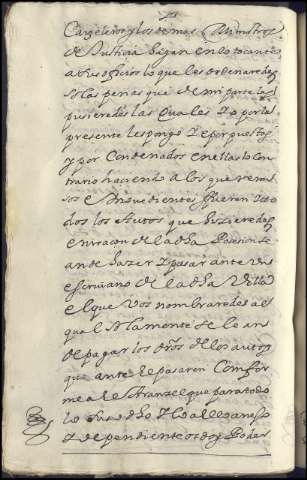 Carceleros y los demas Ministros
de Justicia hagan en lo tocante
a sus oficios lo que les ordenaredes
so las penas que de mi parte les
pusieredes las quales Yo por la
presente les pongo Y e por puestas
y por Condenados en ellas lo con
trario haciendo a los que remi
sos e Ynovedientes fueren Y to
dos los Autos que hizieredes
en racon de la dha Posecion se
an de hazer Y pasar ante un
escrivano de la dha Villa
el que Vos nombraredes al
qual solamente se le an
de pagar los dros de los autos
que ante el pasaren Confor
me al Aranzel que para todo
lo suso dho Y lo a ello anejo
Y dependiente os doy Poder